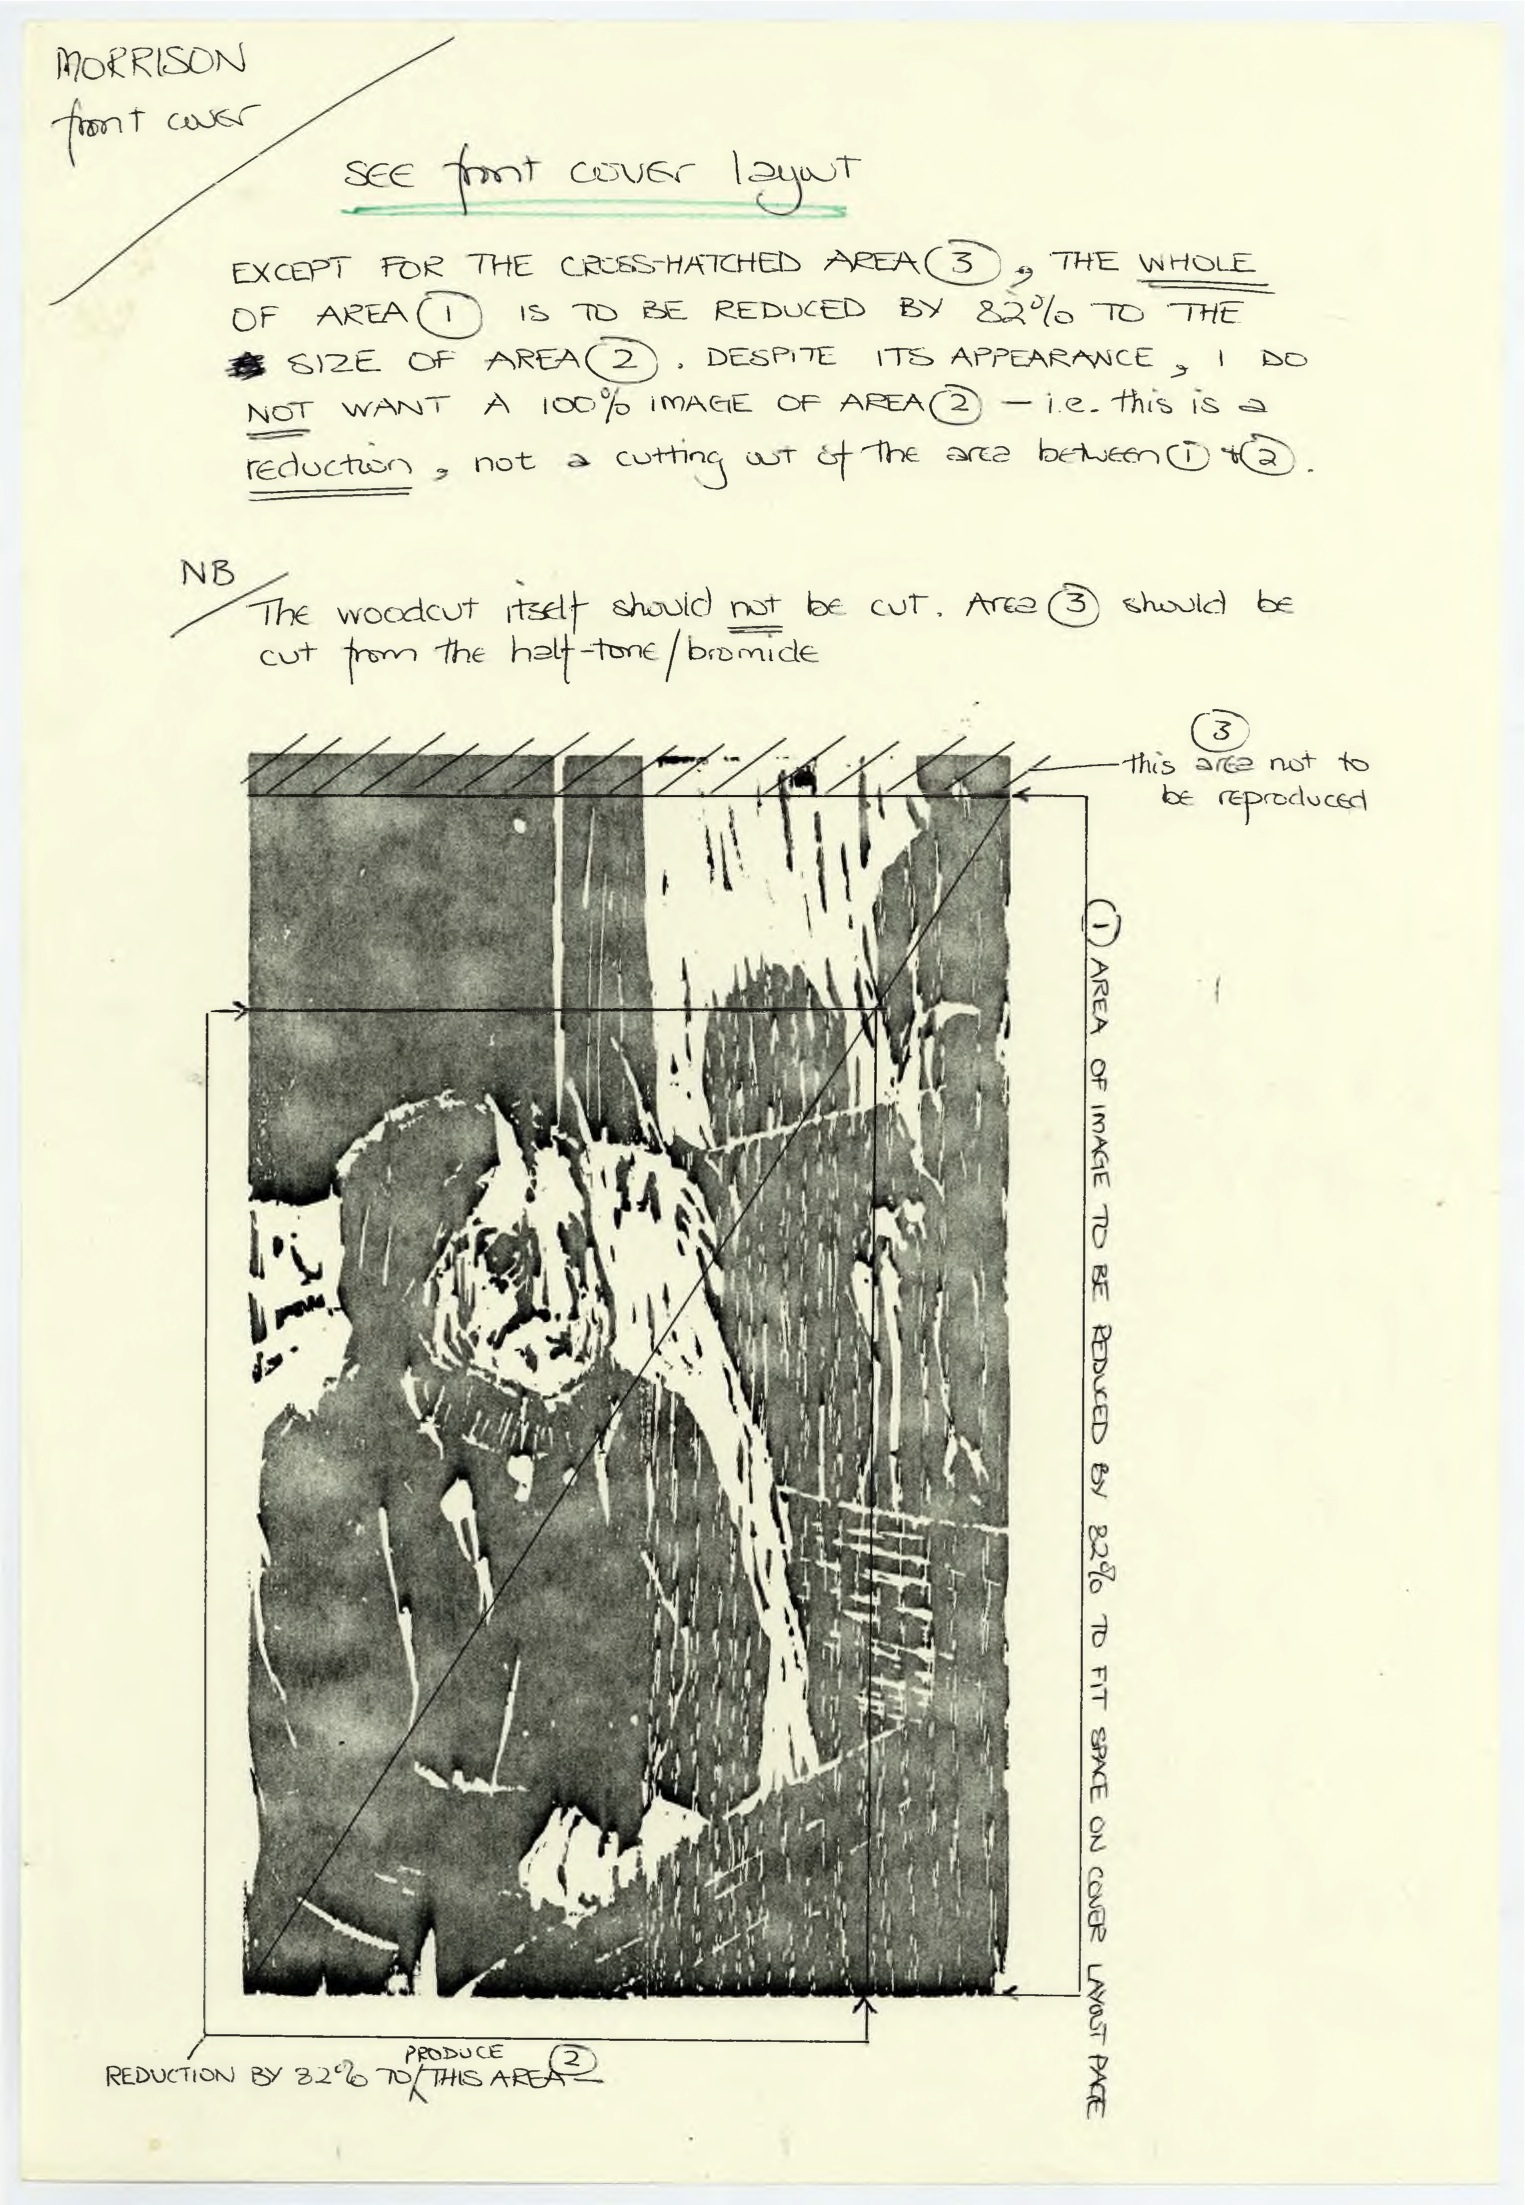 MORRISON
front cover
SEE front cover layout
EXCEPT FOR THE CROSS-HATCHED AREA ③, THE WHOLE
OF AREA ① IS TO BE REDUCED BY 82% TO THE
SIZE OF AREA ②. DESPITE ITS APPEARANCE, I DO
NOT WANT A 100% IMAGE OF AREA ② — i.e. this is a
reduction, not a cutting out of the area between ① + ②.
NB
The woodcut itself should not be cut. Area ③ should be
cut from the half-tone/bromide
③
this area not to
be reproduced
① AREA OF IMAGE TO BE REDUCED BY 82% TO FIT SPACE ON COVER LAYOUT PAGE
REDUCTION BY 82% TO PRODUCE THIS AREA ②